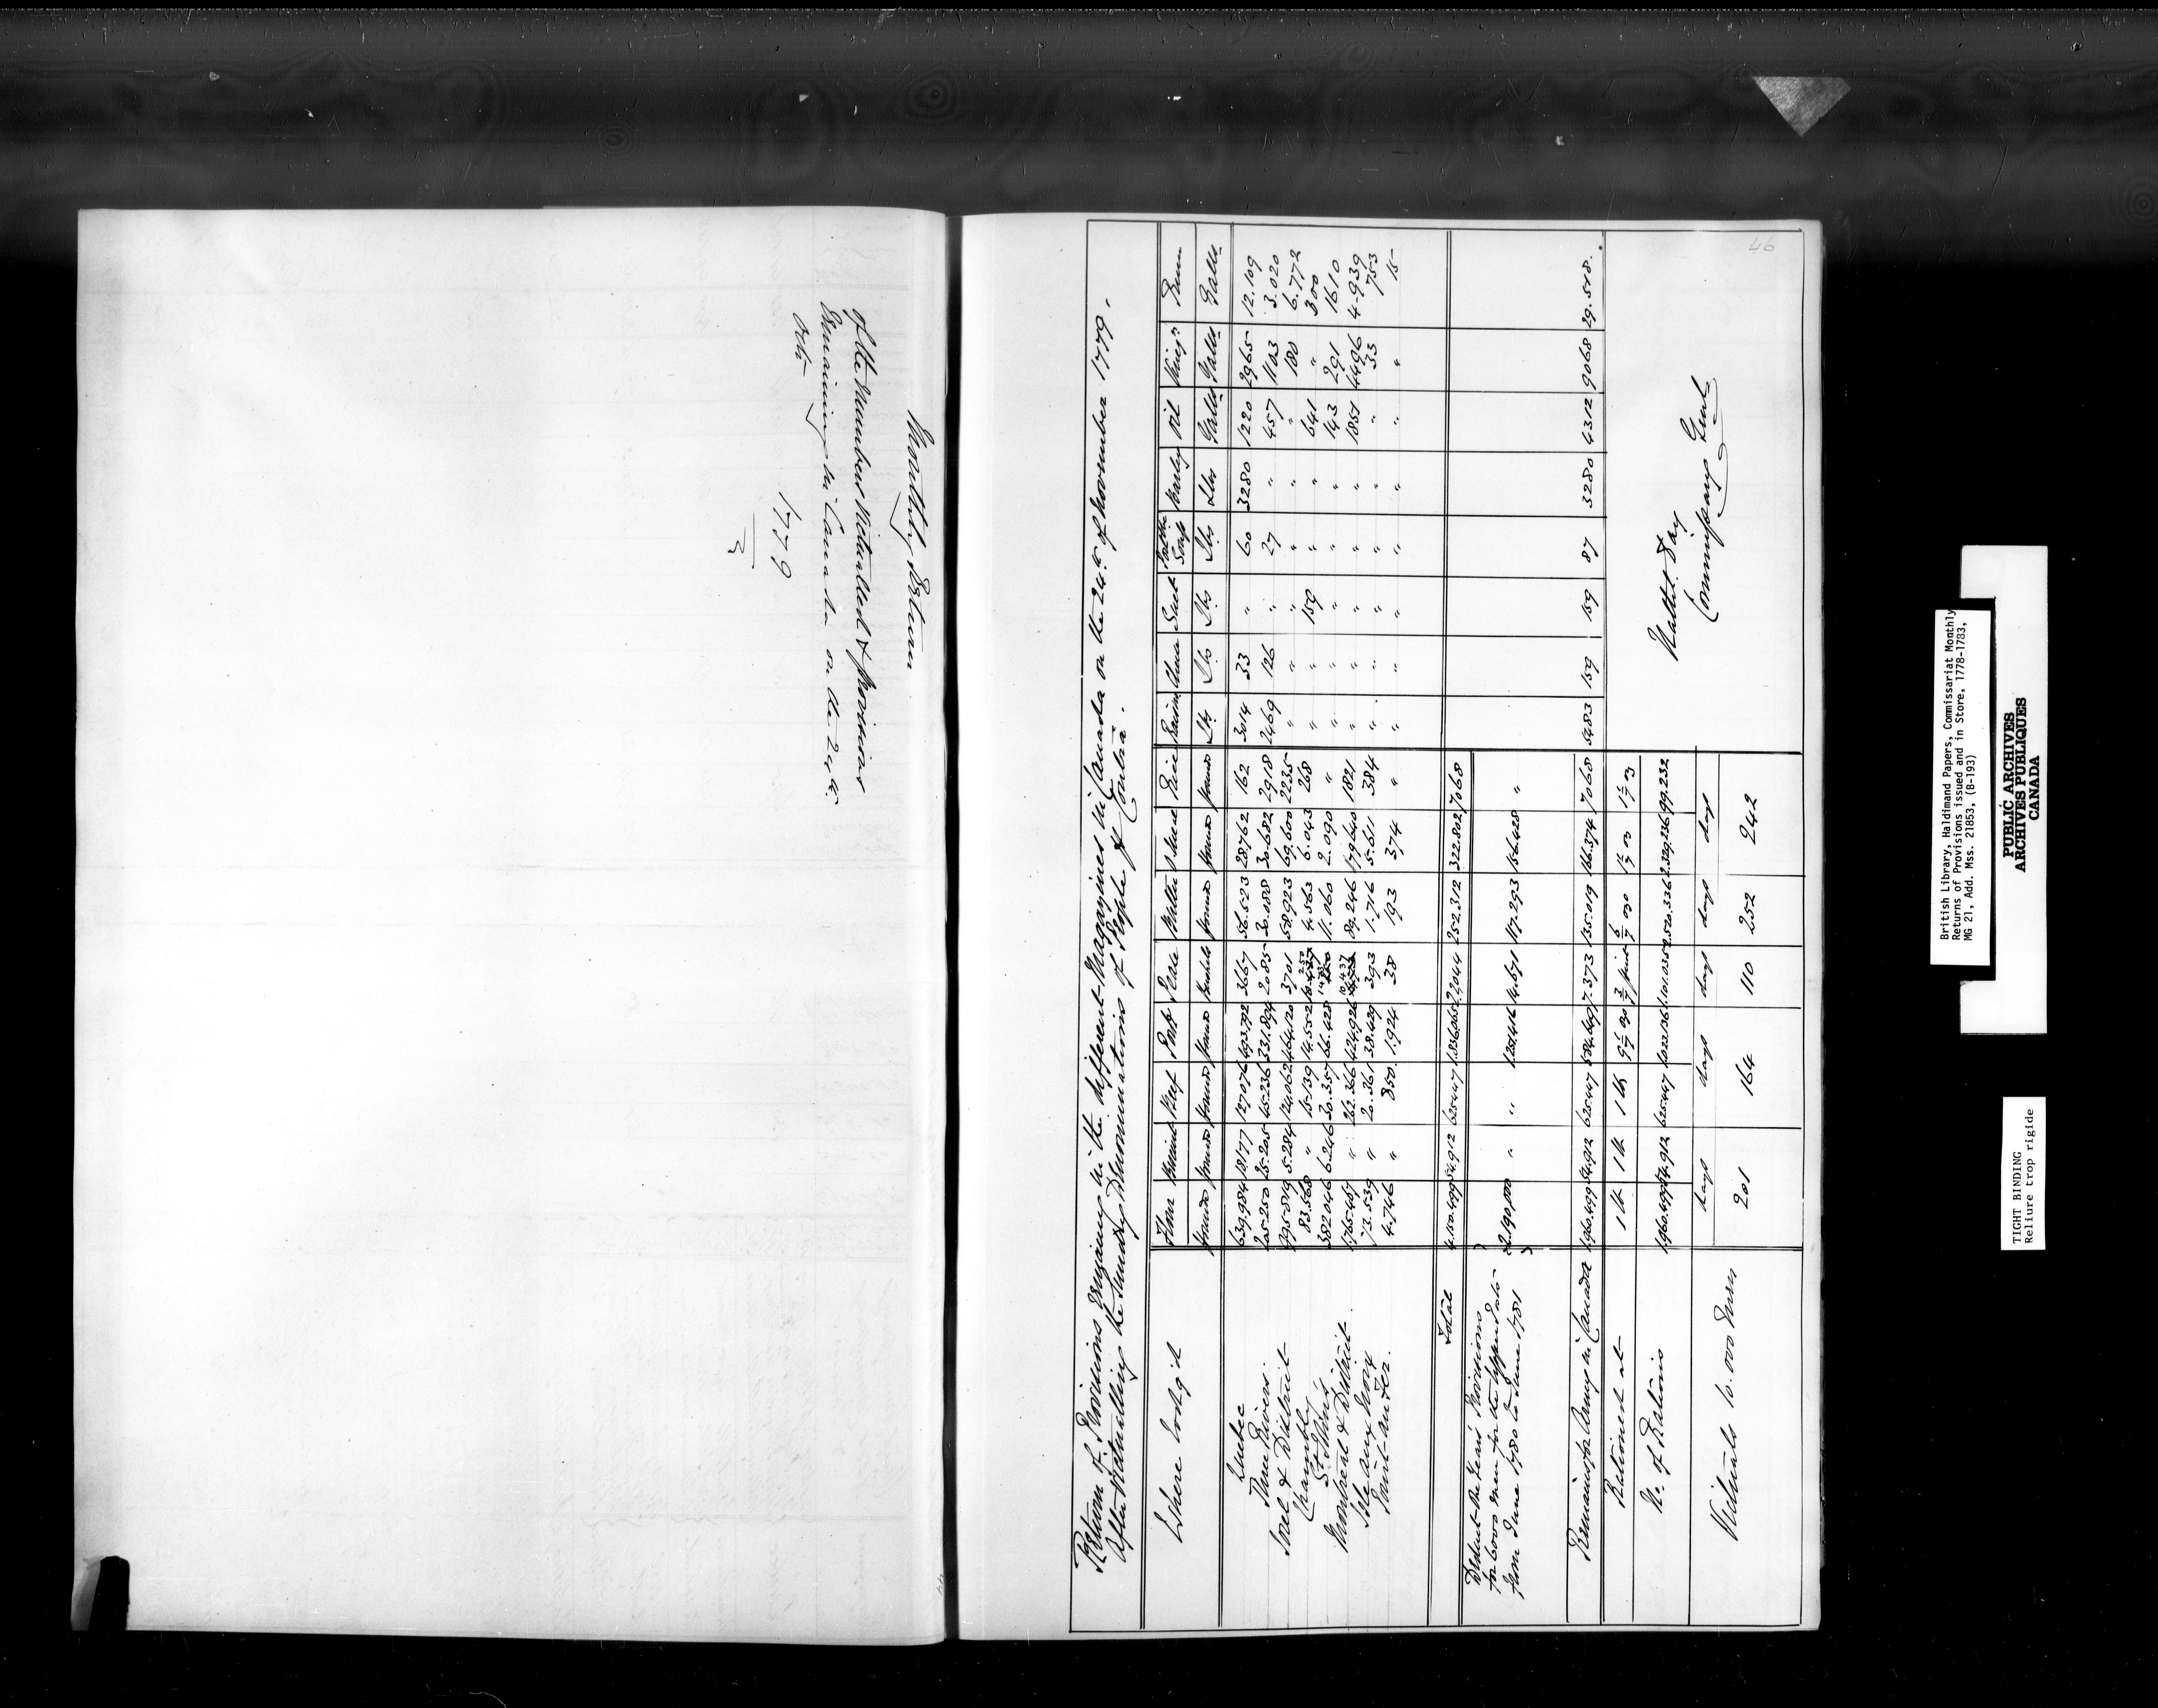 Monthly Return
of the Numbers Victualled & provisions
Remaining in Canada on the 24th
Octr
1779
46
Return of Provisions remaining in the different Magazines in Canada on the 24th of November 1779.
After Victualling the Sundry Denominations of People of Contra.
Where Lodg'd Flour Biscuit Beef Pork Pease Butter Oatmeal Rice Raisins Suet Barley Oil Vineg.r Rum
Pounds Pounds Pounds Pounds Bushels Pounds Pounds Pounds Lbs Lbs Lbs Lbs Lbs Galls Galls Galls
Quebec 639.984 18.177 127.076 493.792 3667 56.523 28.762 162 3014 33 " 60 3280 1220 2965 12.109
Three Rivers 205.250 25.205 45.236 331.894 2085 30.088 30.682 2918 2469 126 " 27 " 457 1103 3.020
Sorel & District 995.819 5.284 124.062 464.120 3701 58.923 69.600 2235 " " " " " " 180 6.772
Chambly 83.568 " 15.139 14.552 250 4.563 6.043 268 " " 159 " " 641 " 300
St. Johns 382.046 6.246 30.357 66.428 11.060 2.090 " " " " " " 143 291 1610
Montreal & District 1.765.467 " 262.366 424.926 10.437 89.246 179.640 1821 " " " " " 1851 4496 4.939
Isle aux Noix 73.539 " 20.361 38.429 393 1.716 5.611 384 " " " " " " 33 753
Point-au-Fer. 4.746 " 850 1.924 38 193 374 " " " " " " " " 15
Total 4.150.499 54.912 625.447 1.836.065 22.044 252.312 322.802 7068
Deduct the Years Provisions
for 6000 men for the Upper Posts
from June 1780 to June 1781 2.190.000 " " 1.251.416 14.671 117.293 156.428 "
Remains for Army in Canada 1.960.499 54.912 625.447 584.649 7.373 135.019 166.374 7068 5483 159 159 87 3280 4312 9068 29.518.
Rationed at 1 lb 1 lb 1 lb 9 1/7 oz 3/7 pint 6/7 oz 1 1/7 oz 1 1/7 oz
No. of Rations 1.960.499 54.912 625.447 1.022.136 1.101.035 2.520.336 2.329.236 99.232
days days days days days
Victuals 10.000 Men 201 164 110 252 242
Nathl. Day
Commissary Genl
British Library, Haldimand Papers, Commissariat Monthly
Returns of Provisions issued and in Store, 1778-1783,
MG 21, Add. Mss. 21853, (B-193)
PUBLIC ARCHIVES
ARCHIVES PUBLIQUES
CANADA
TIGHT BINDING
Reliure trop rigide